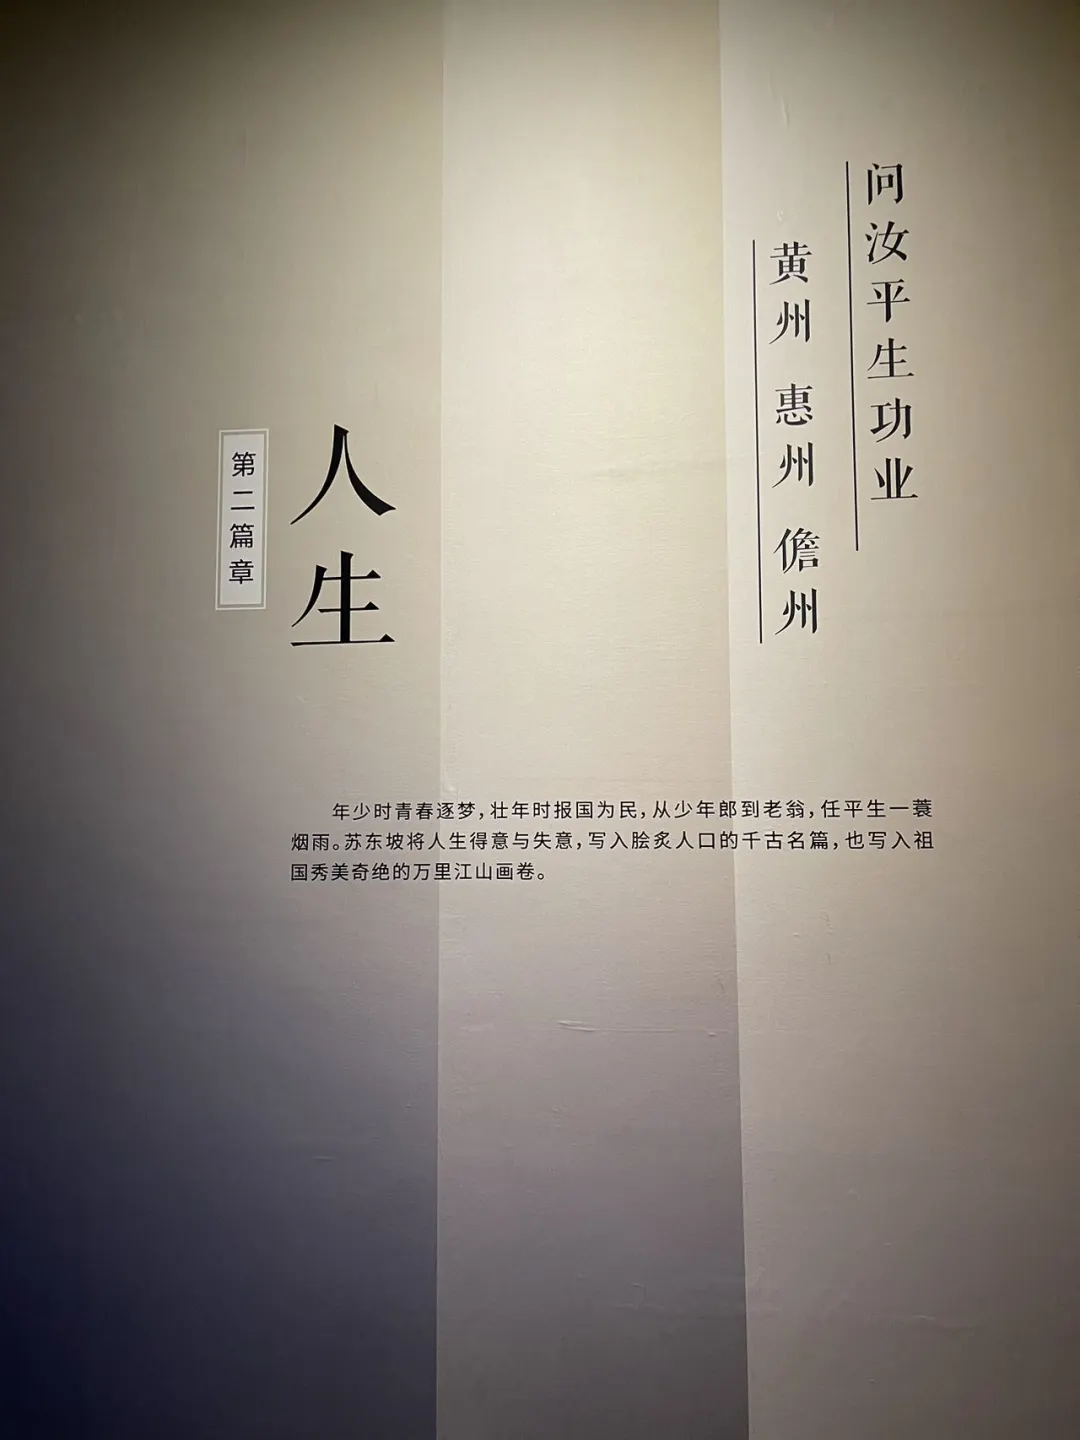 问汝平生功业
黄州 惠州 儋州
人生
第二篇章
年少时青春逐梦，壮年时报国为民，从少年郎到老翁，任平生一蓑
烟雨。苏东坡将人生得意与失意，写入脍炙人口的千古名篇，也写入祖
国秀美奇绝的万里江山画卷。